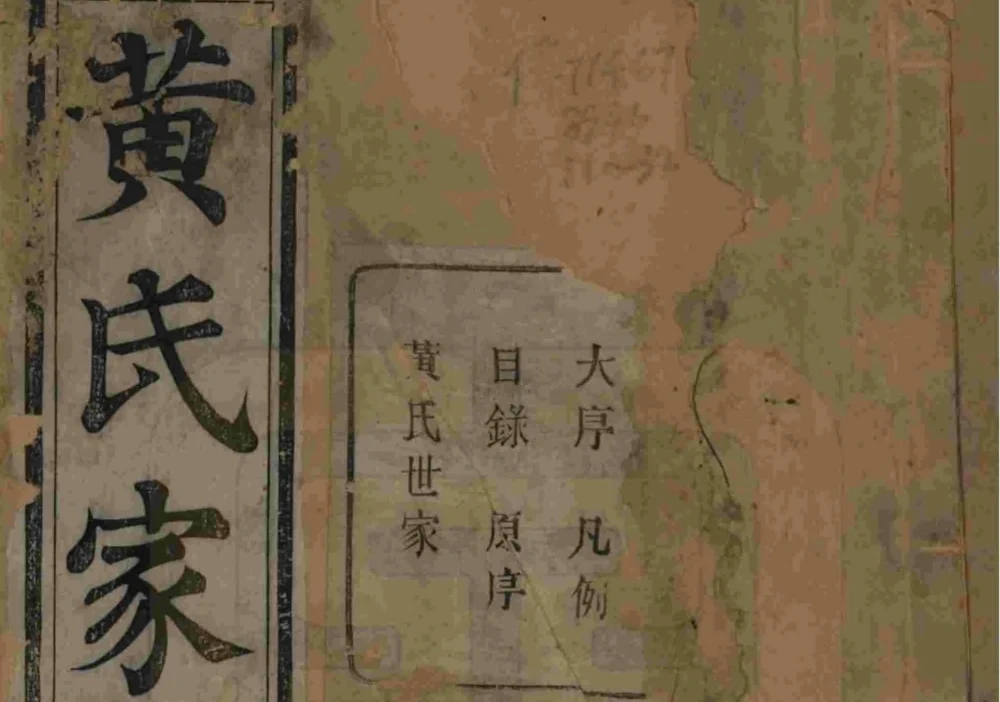 黃氏家
大序 凡例
目錄 原序
黃氏世家